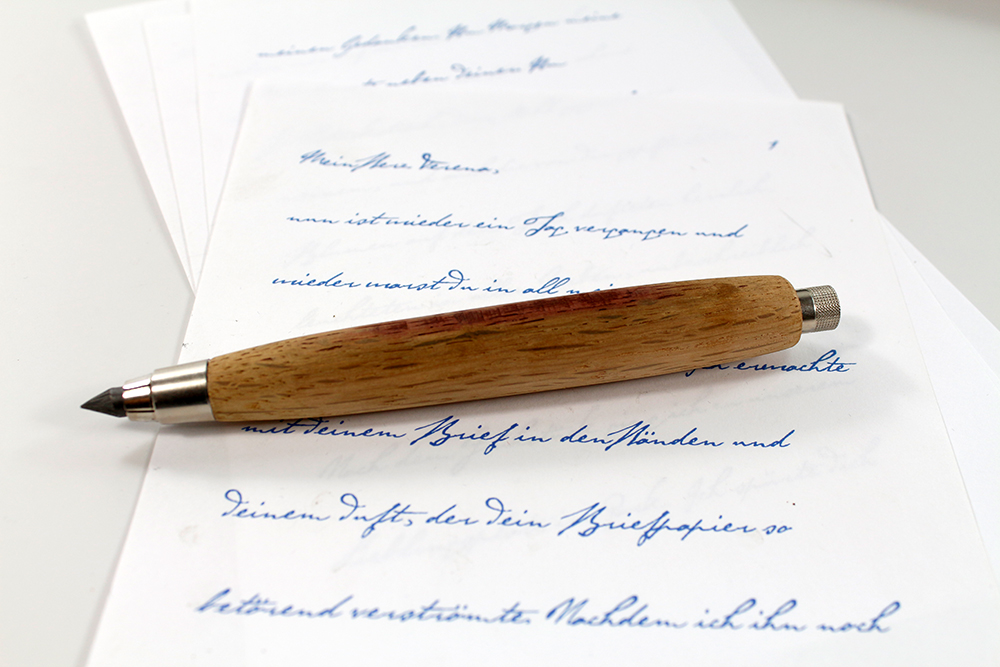 meinen Gedanken. Ihr Wangen meine
neben deinen
1
Mein Herz Verena,
nun ist wieder ein Tag vergangen und
wieder warst du in all
erwachte
mit deinem Brief in den Händen und
deinem Duft, der dein Briefpapier so
betörend verströmte. Nachdem ich ihn noch